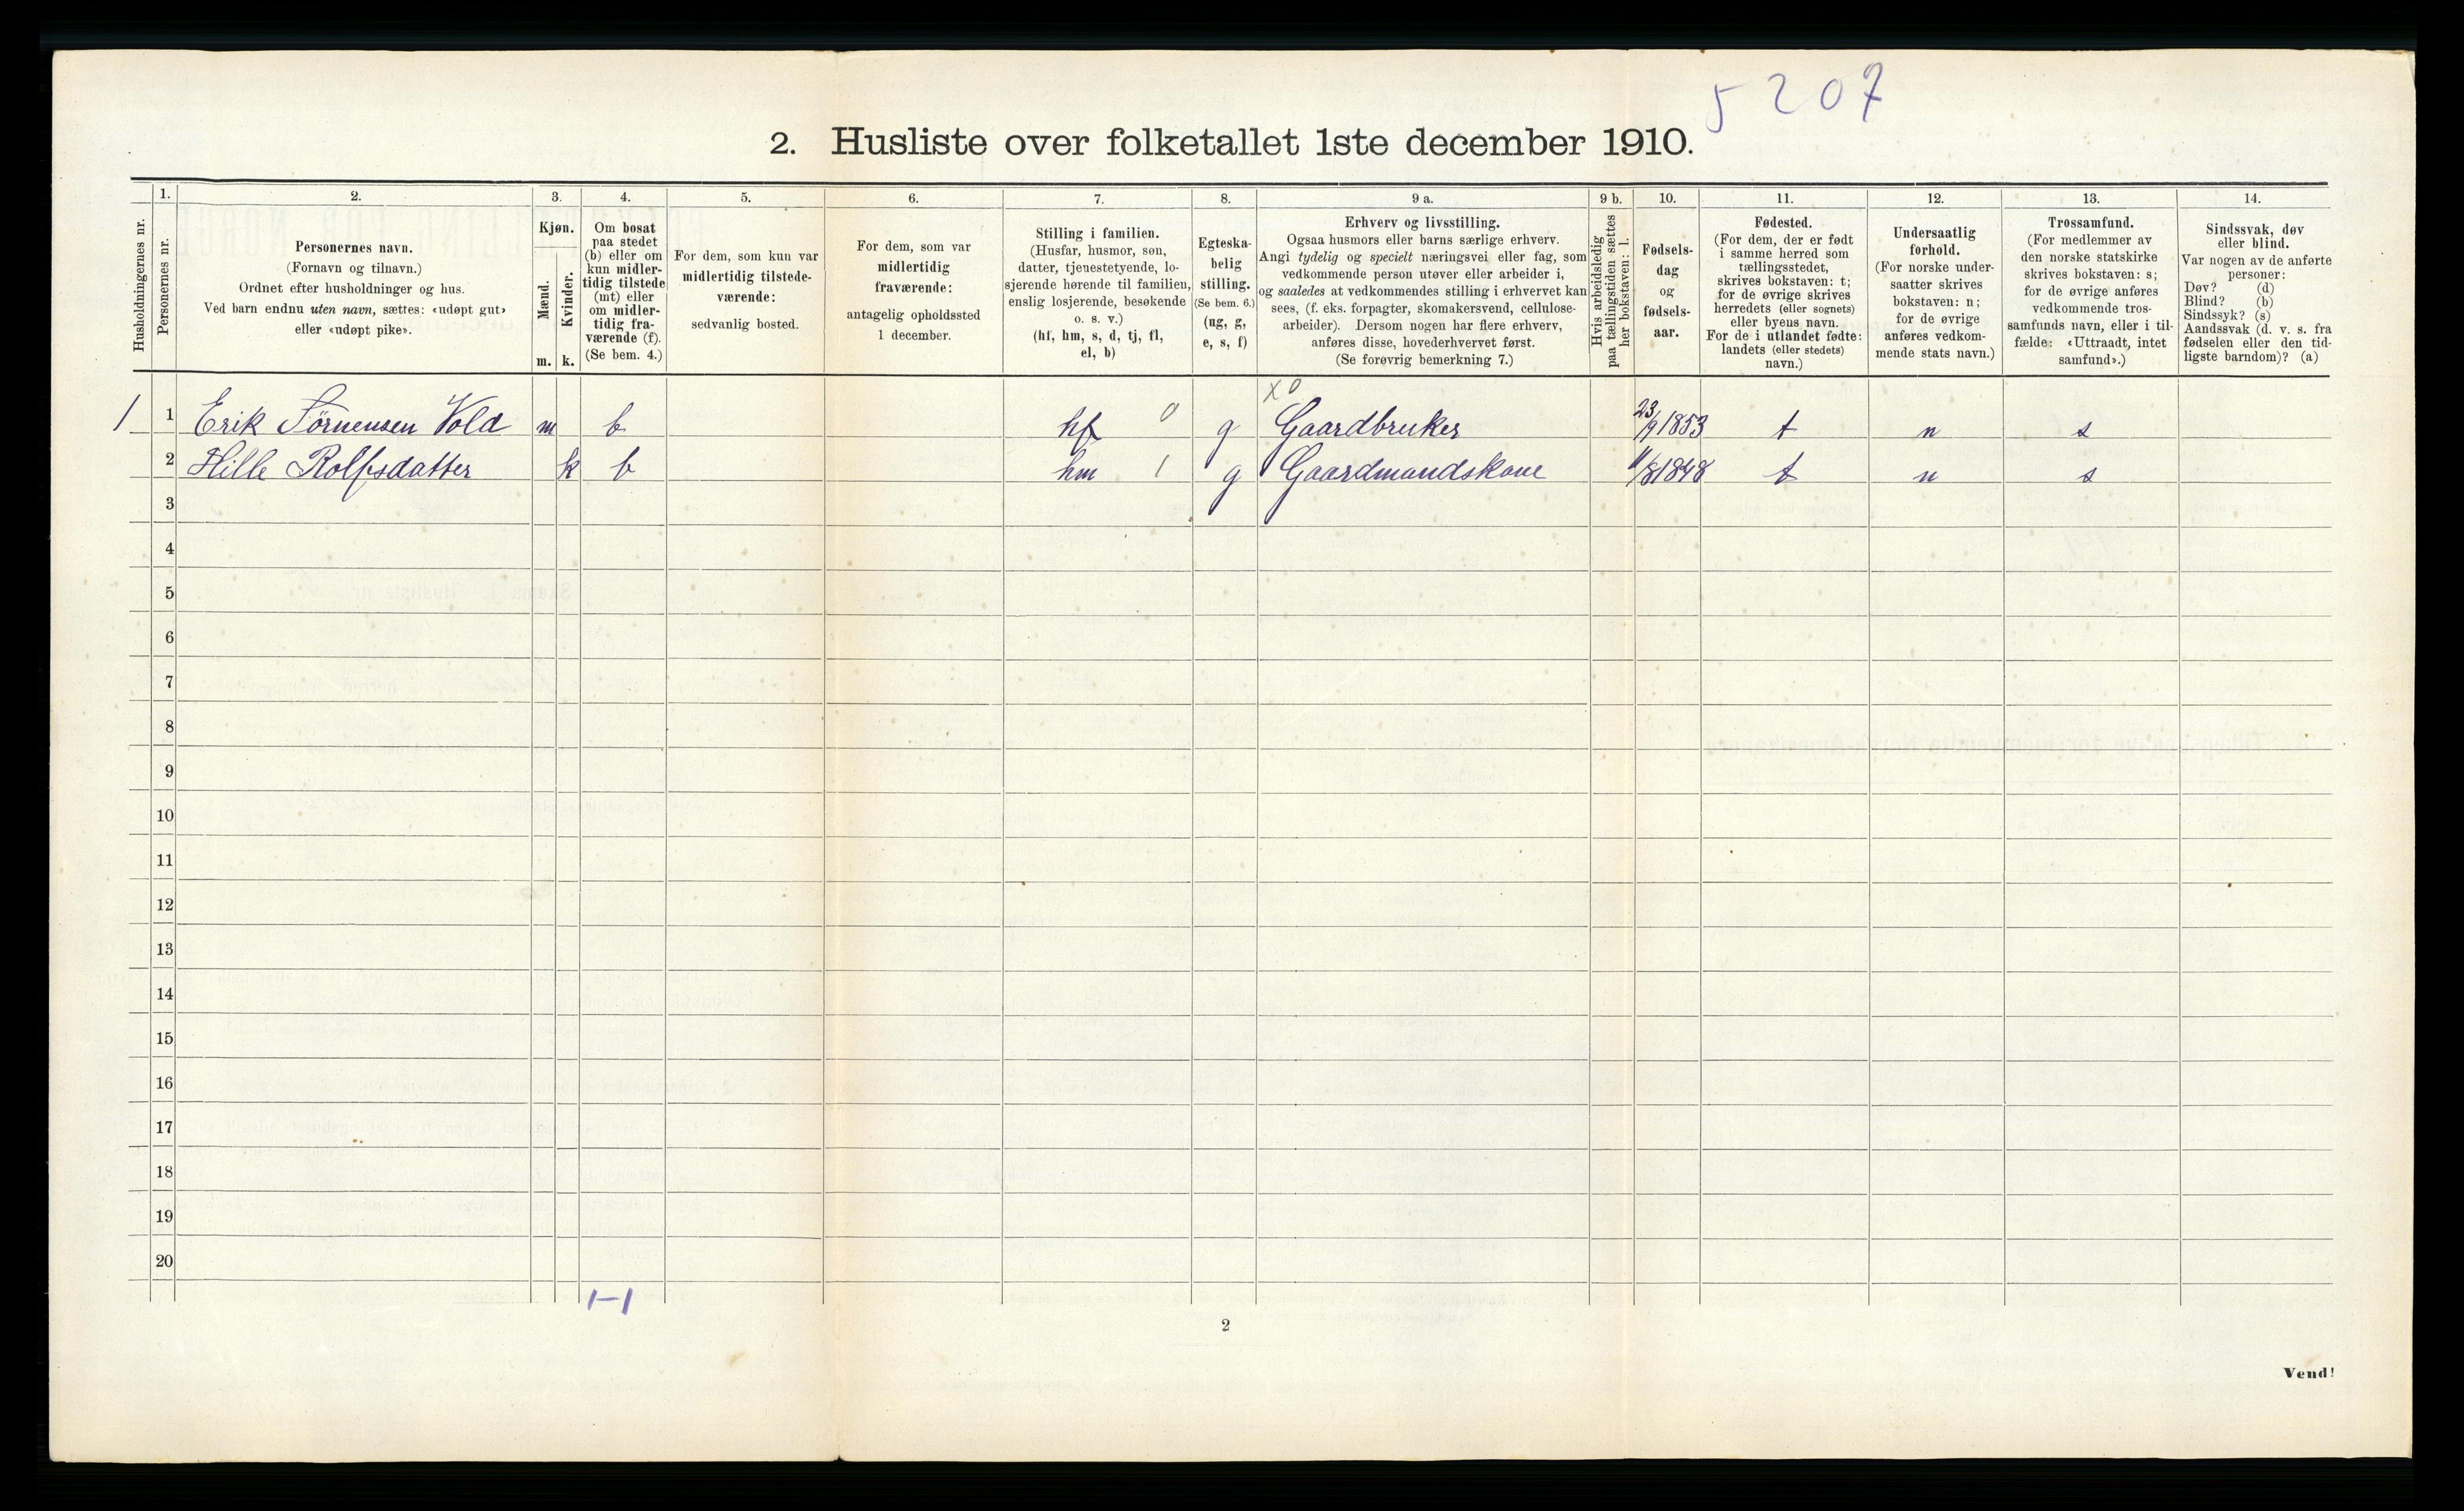 5207
2. Husliste over folketallet 1ste december 1910.
Husholdningernes nr.
1.
Personernes nr.
2.
Personernes navn.
(Fornavn og tilnavn.)
Ordnet efter husholdninger og hus.
Ved barn endnu uten navn, sættes: «udøpt gut»
eller «udøpt pike».
3.
Kjøn.
Mænd.
m.
Kvinder.
k.
4.
Om bosat
paa stedet
(b) eller om
kun midler-
tidig tilstede
(mt) eller
om midler-
tidig fra-
værende (f).
(Se bem. 4.)
5.
For dem, som kun var
midlertidig tilstede-
værende:
sedvanlig bosted.
6.
For dem, som var
midlertidig
fraværende:
antagelig opholdssted
1 december.
7.
Stilling i familien.
(Husfar, husmor, søn,
datter, tjenestetyende, lo-
sjerende hørende til familien,
enslig losjerende, besøkende
o. s. v.)
(hf, hm, s, d, tj, fl,
el, b)
8.
Egteska-
belig
stilling.
(Se bem. 6.)
(ug, g,
e, s, f)
9 a.
Erhverv og livsstilling.
Ogsaa husmors eller barns særlige erhverv.
Angi tydelig og specielt næringsvei eller fag, som
vedkommende person utøver eller arbeider i,
og saaledes at vedkommendes stilling i erhvervet kan
sees, (f. eks. forpagter, skomakersvend, cellulose-
arbeider). Dersom nogen har flere erhverv,
anføres disse, hovederhvervet først.
(Se forøvrig bemerkning 7.)
9 b.
Hvis arbeidsledig
paa tællingstiden sættes
her bokstaven: l.
10.
Fødsels-
dag
og
fødsels-
aar.
11.
Fødested.
(For dem, der er født
i samme herred som
tællingsstedet,
skrives bokstaven: t;
for de øvrige skrives
herredets (eller sognets)
eller byens navn.
For de i utlandet fødte:
landets (eller stedets)
navn.)
12.
Undersaatlig
forhold.
(For norske under-
saatter skrives
bokstaven: n;
for de øvrige
anføres vedkom-
mende stats navn.)
13.
Trossamfund.
(For medlemmer av
den norske statskirke
skrives bokstaven: s;
for de øvrige anføres
vedkommende tros-
samfunds navn, eller i til-
fælde: «Uttraadt, intet
samfund».)
14.
Sindssvak, døv
eller blind.
Var nogen av de anførte
personer:
Døv? (d)
Blind? (b)
Sindssyk? (s)
Aandssvak (d. v. s. fra
fødselen eller den tid-
ligste barndom)? (a)
x0
1 1 Erik Sørnensen Vold m b hf 0 g Gaardbruker 23/9 1853 t n s
2 Hille Rolfsdatter k b hm 1 g Gaardmandskone 11/8 1848 t n s
3
4
5
6
7
8
9
10
11
12
13
14
15
16
17
18
19
20
1-1
2
Vend!